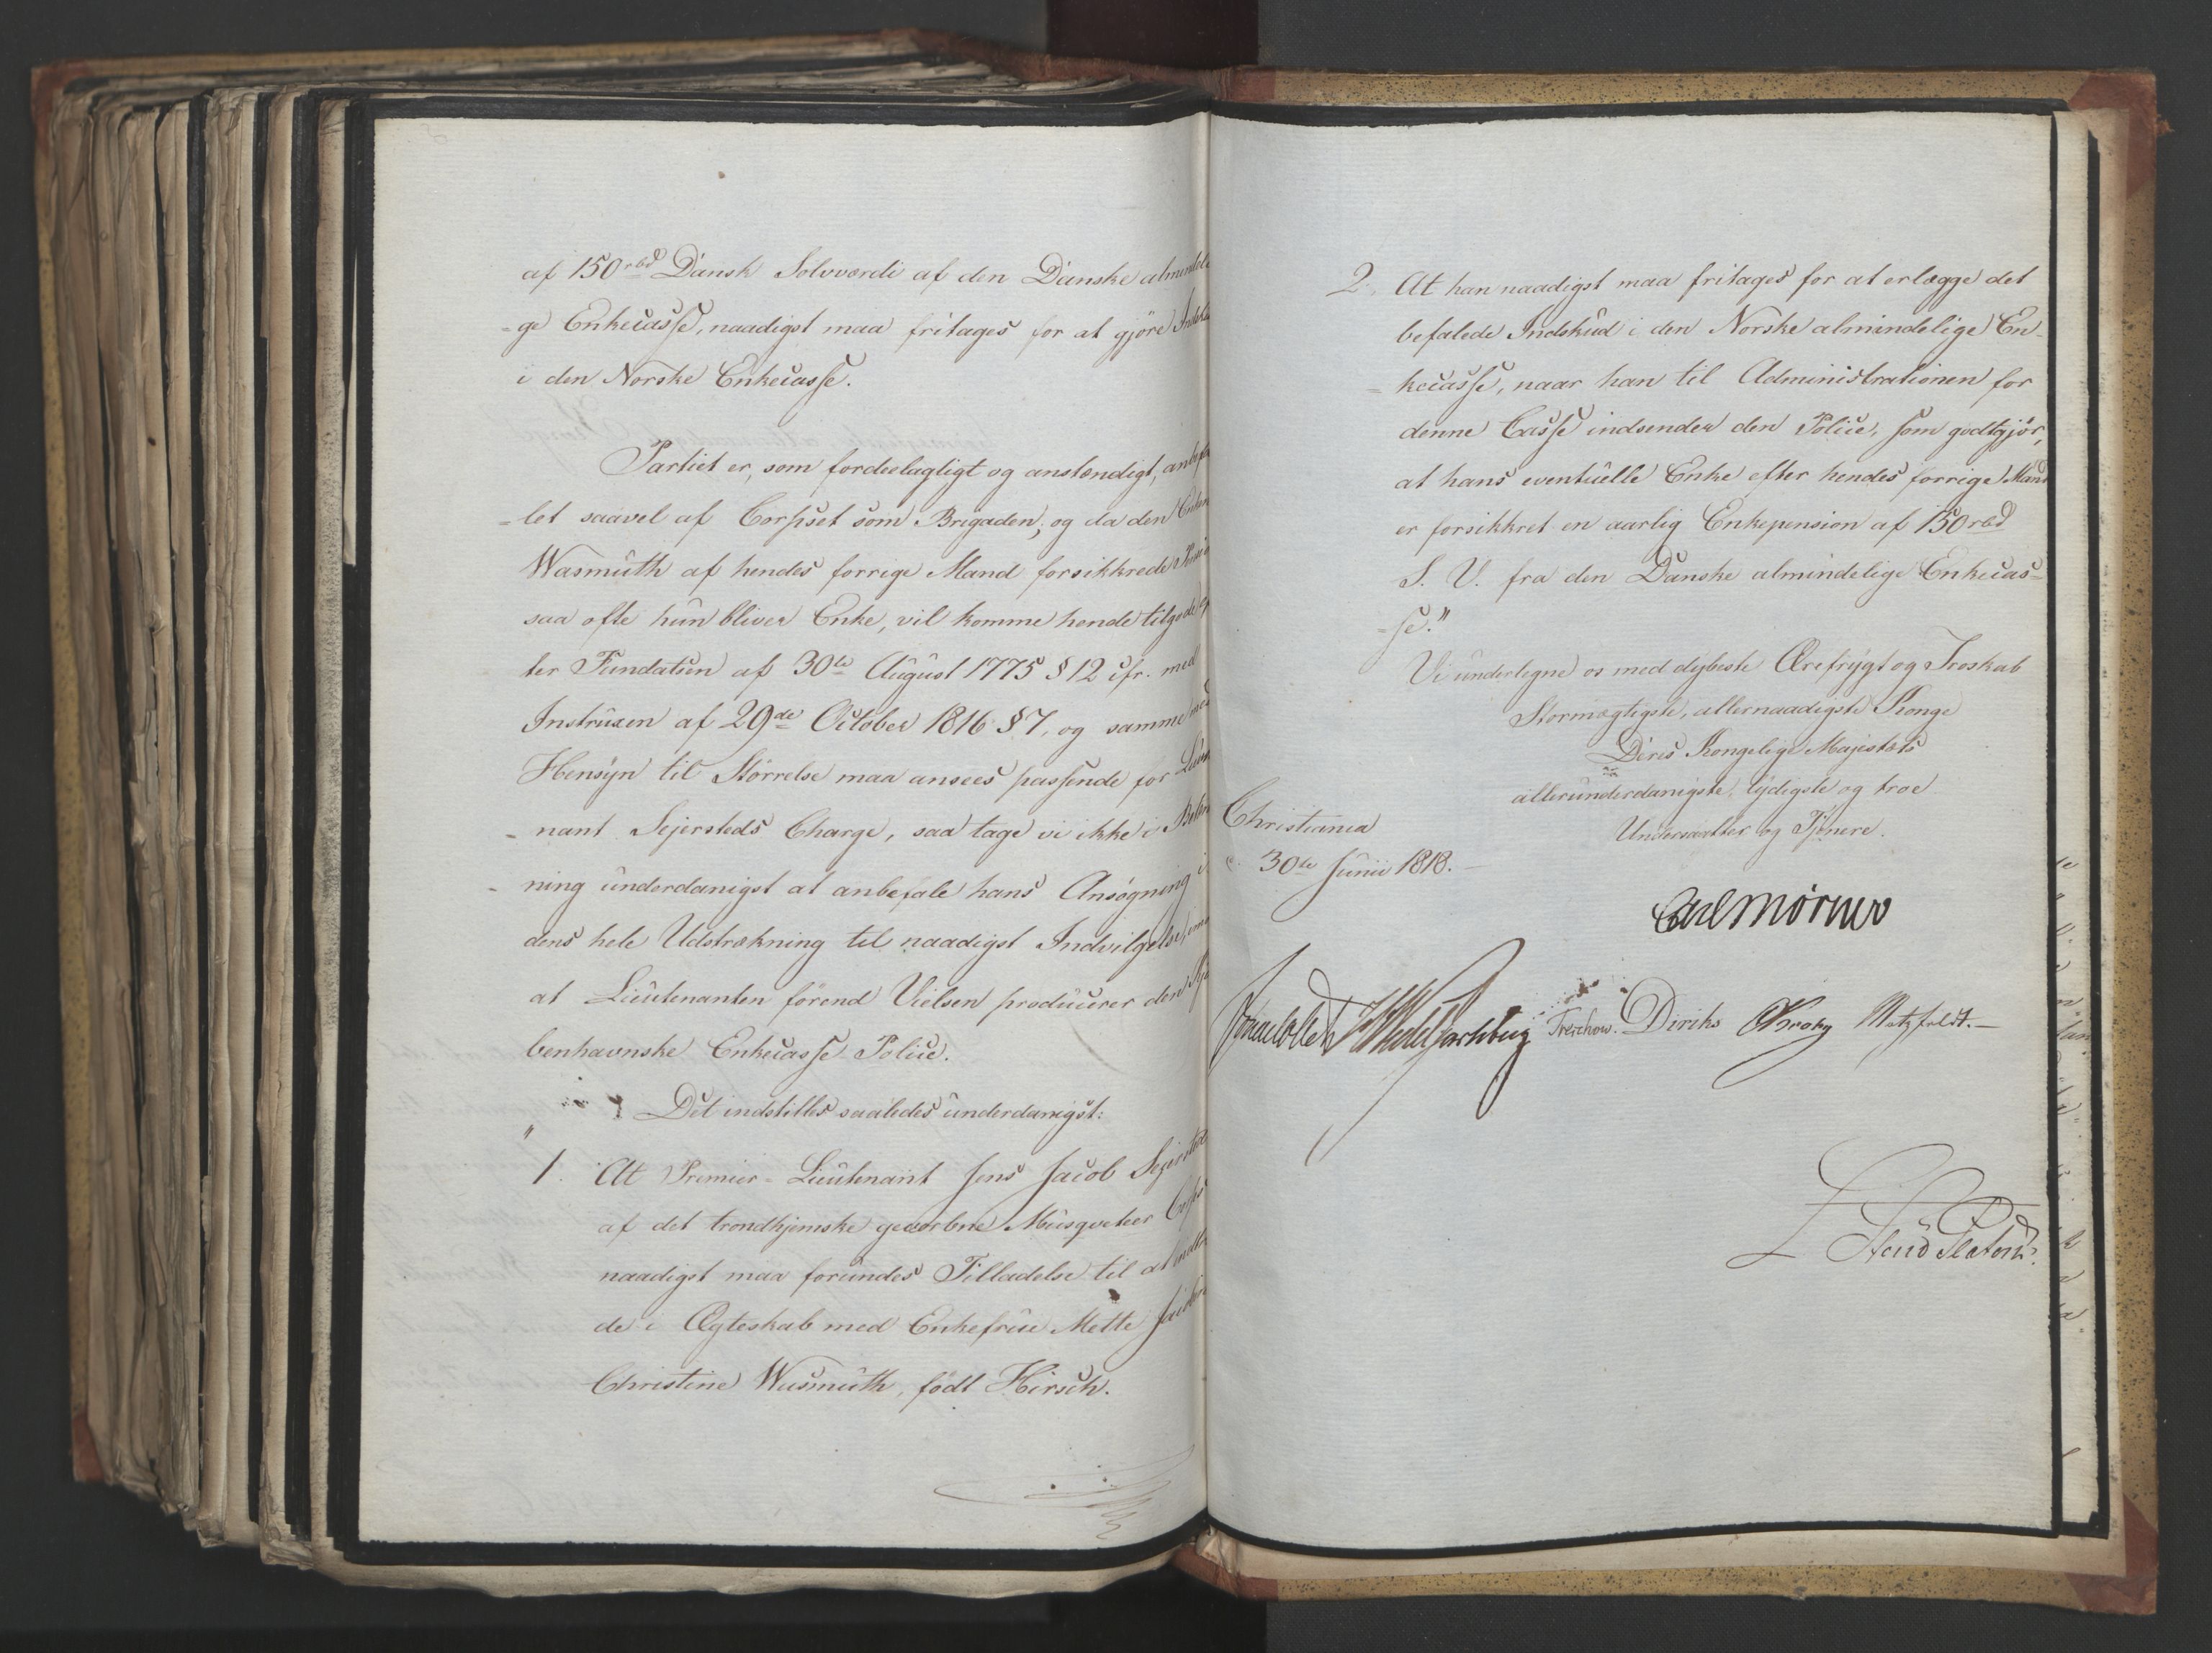 af 150 rbd Dansk Sølvværdi af den Danske almindeli
=ge Enkecasse, naadigst maa fritages for at gjöre
i den Norske Enkecasse.
Partiet er, som fordeelagtigt og anstændigt, anbefa
=let saavel af Corpset som Brigaden; og da den
Wasmuth af hendes forrige Mand forsikkrede
saa ofte hun bliver Enke, vil komme hende tilgode ef
ter Fundatsen af 30te August 1775 § 12 cfr. med
Instruxen af 29de October 1816 § 7, og samme med
Hensyn til Störrelse maa ansees passende for Lieute
nant Sejersteds Charge, saa tage vi ikke i Betæn
ning underdanigst at anbefale hans Ansögning i
dens hele Udstrækning til naadigst Indvilgelse, imod
at Lieutenanten förend Vielsen producerer den Kjö
benhavnske Enkecasse Police.
Det indstilles saaledes underdanigst:
" 1. At Premier-Lieutenant Jens Jacob Sejersted
af det trondhjemske gevorbne Musqveteer Corps
naadigst maa forundes Tilladelse til at indtræ
de i Ægteskab med Enkefrue Mette
Christine Wasmuth, födt Hirsch.
2. At han naadigst maa fritages for at erlægge det
befalede Indskud i den Norske almindelige En-
=kecasse, naar han til Administrationen for
denne Casse indsender den Police, som godtgjör,
at hans eventuelle Enke efter hendes forrige Mand
er forsikkret en aarlig Enkepension af 150 rbd
S. V. fra den Danske almindelige Enkecas=
=se."
Vi undertegne os med dybeste Ærefrygt og Troskab
Stormægtigste, allernaadigste Konge
Deres Kongelige Majestæts
allerunderdanigste, lydigste og troe
Undersaatter og Tjenere.
Christiania
d. 30te Junii 1818.
Carl Mörner
Jonas Collett HWedel Jarlsberg Treschow. Diriks Krohg Motzfeldt.